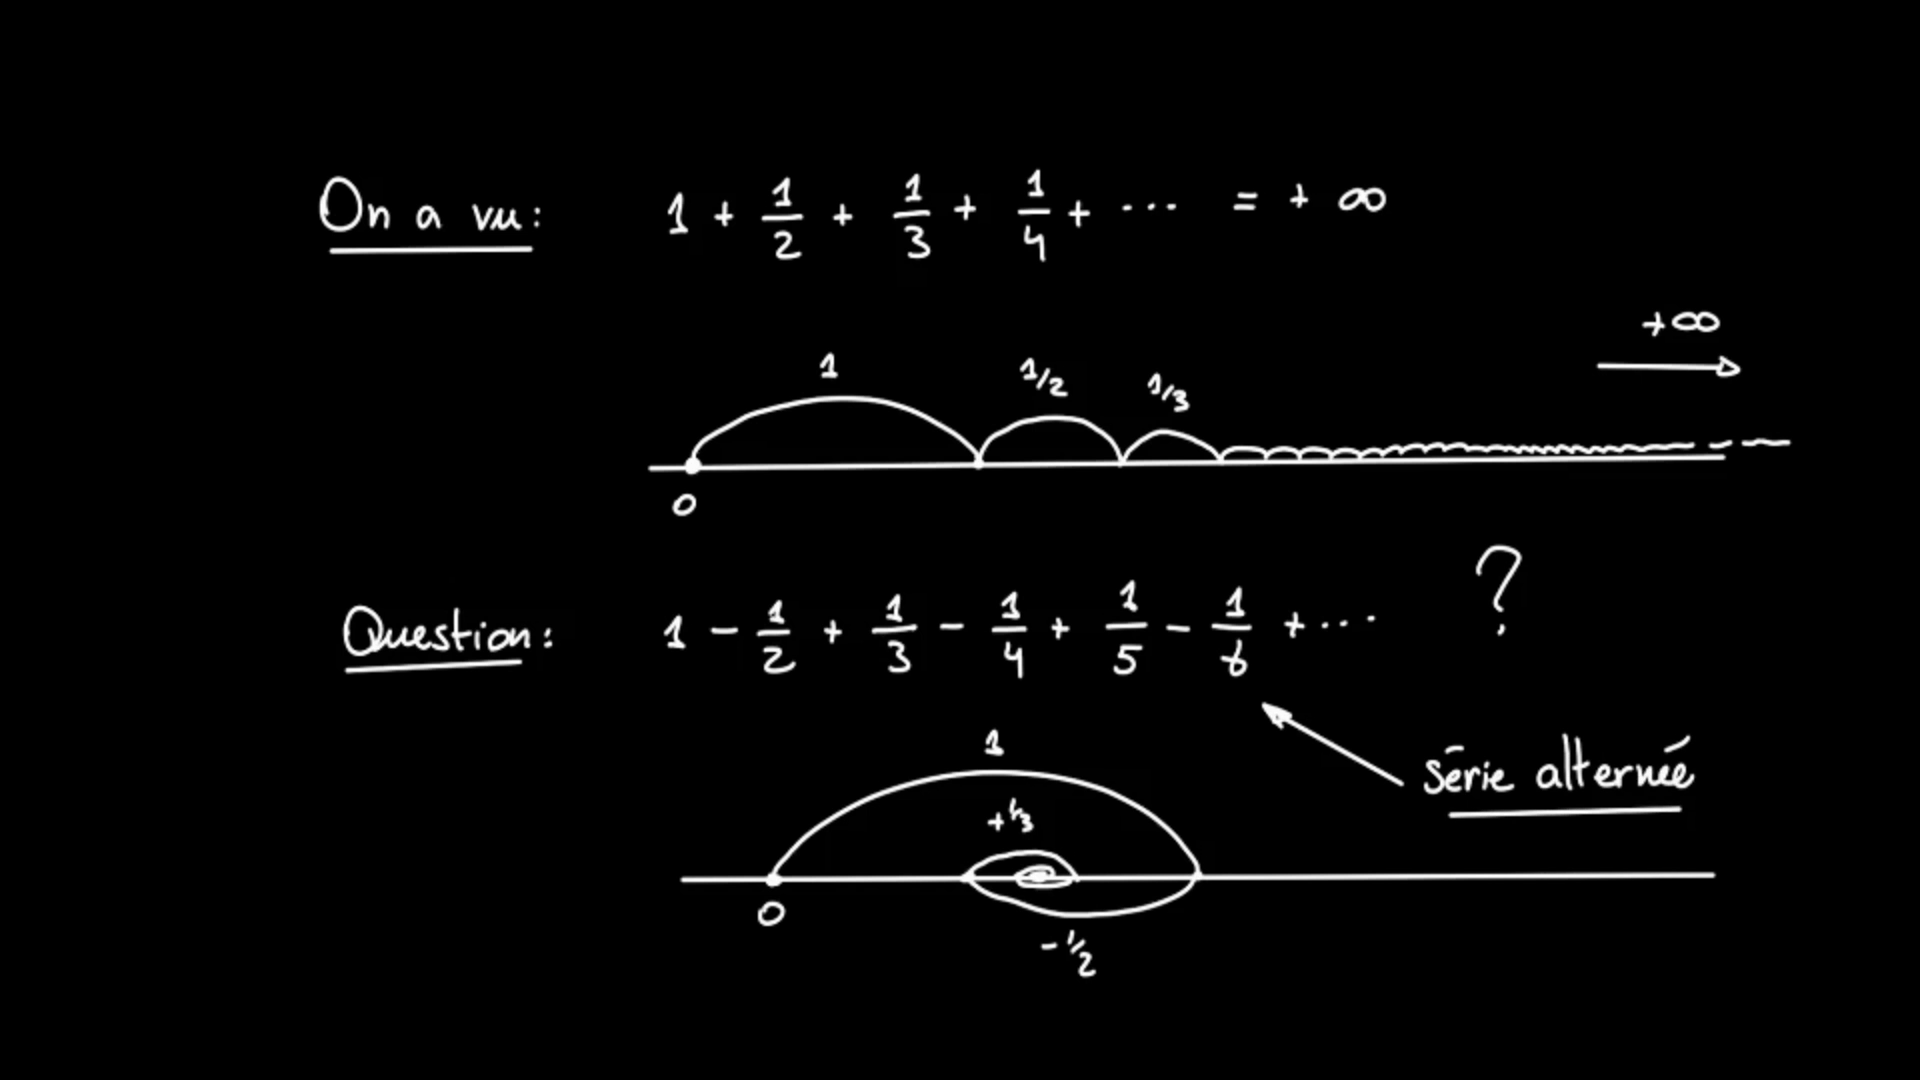 On a vu: 1 + 1/2 + 1/3 + 1/4 + ... = + ∞
+∞
1 1/2 1/3
0
Question: 1 - 1/2 + 1/3 - 1/4 + 1/5 - 1/6 + ... ?
série alternée
1
+1/3
0
-1/2